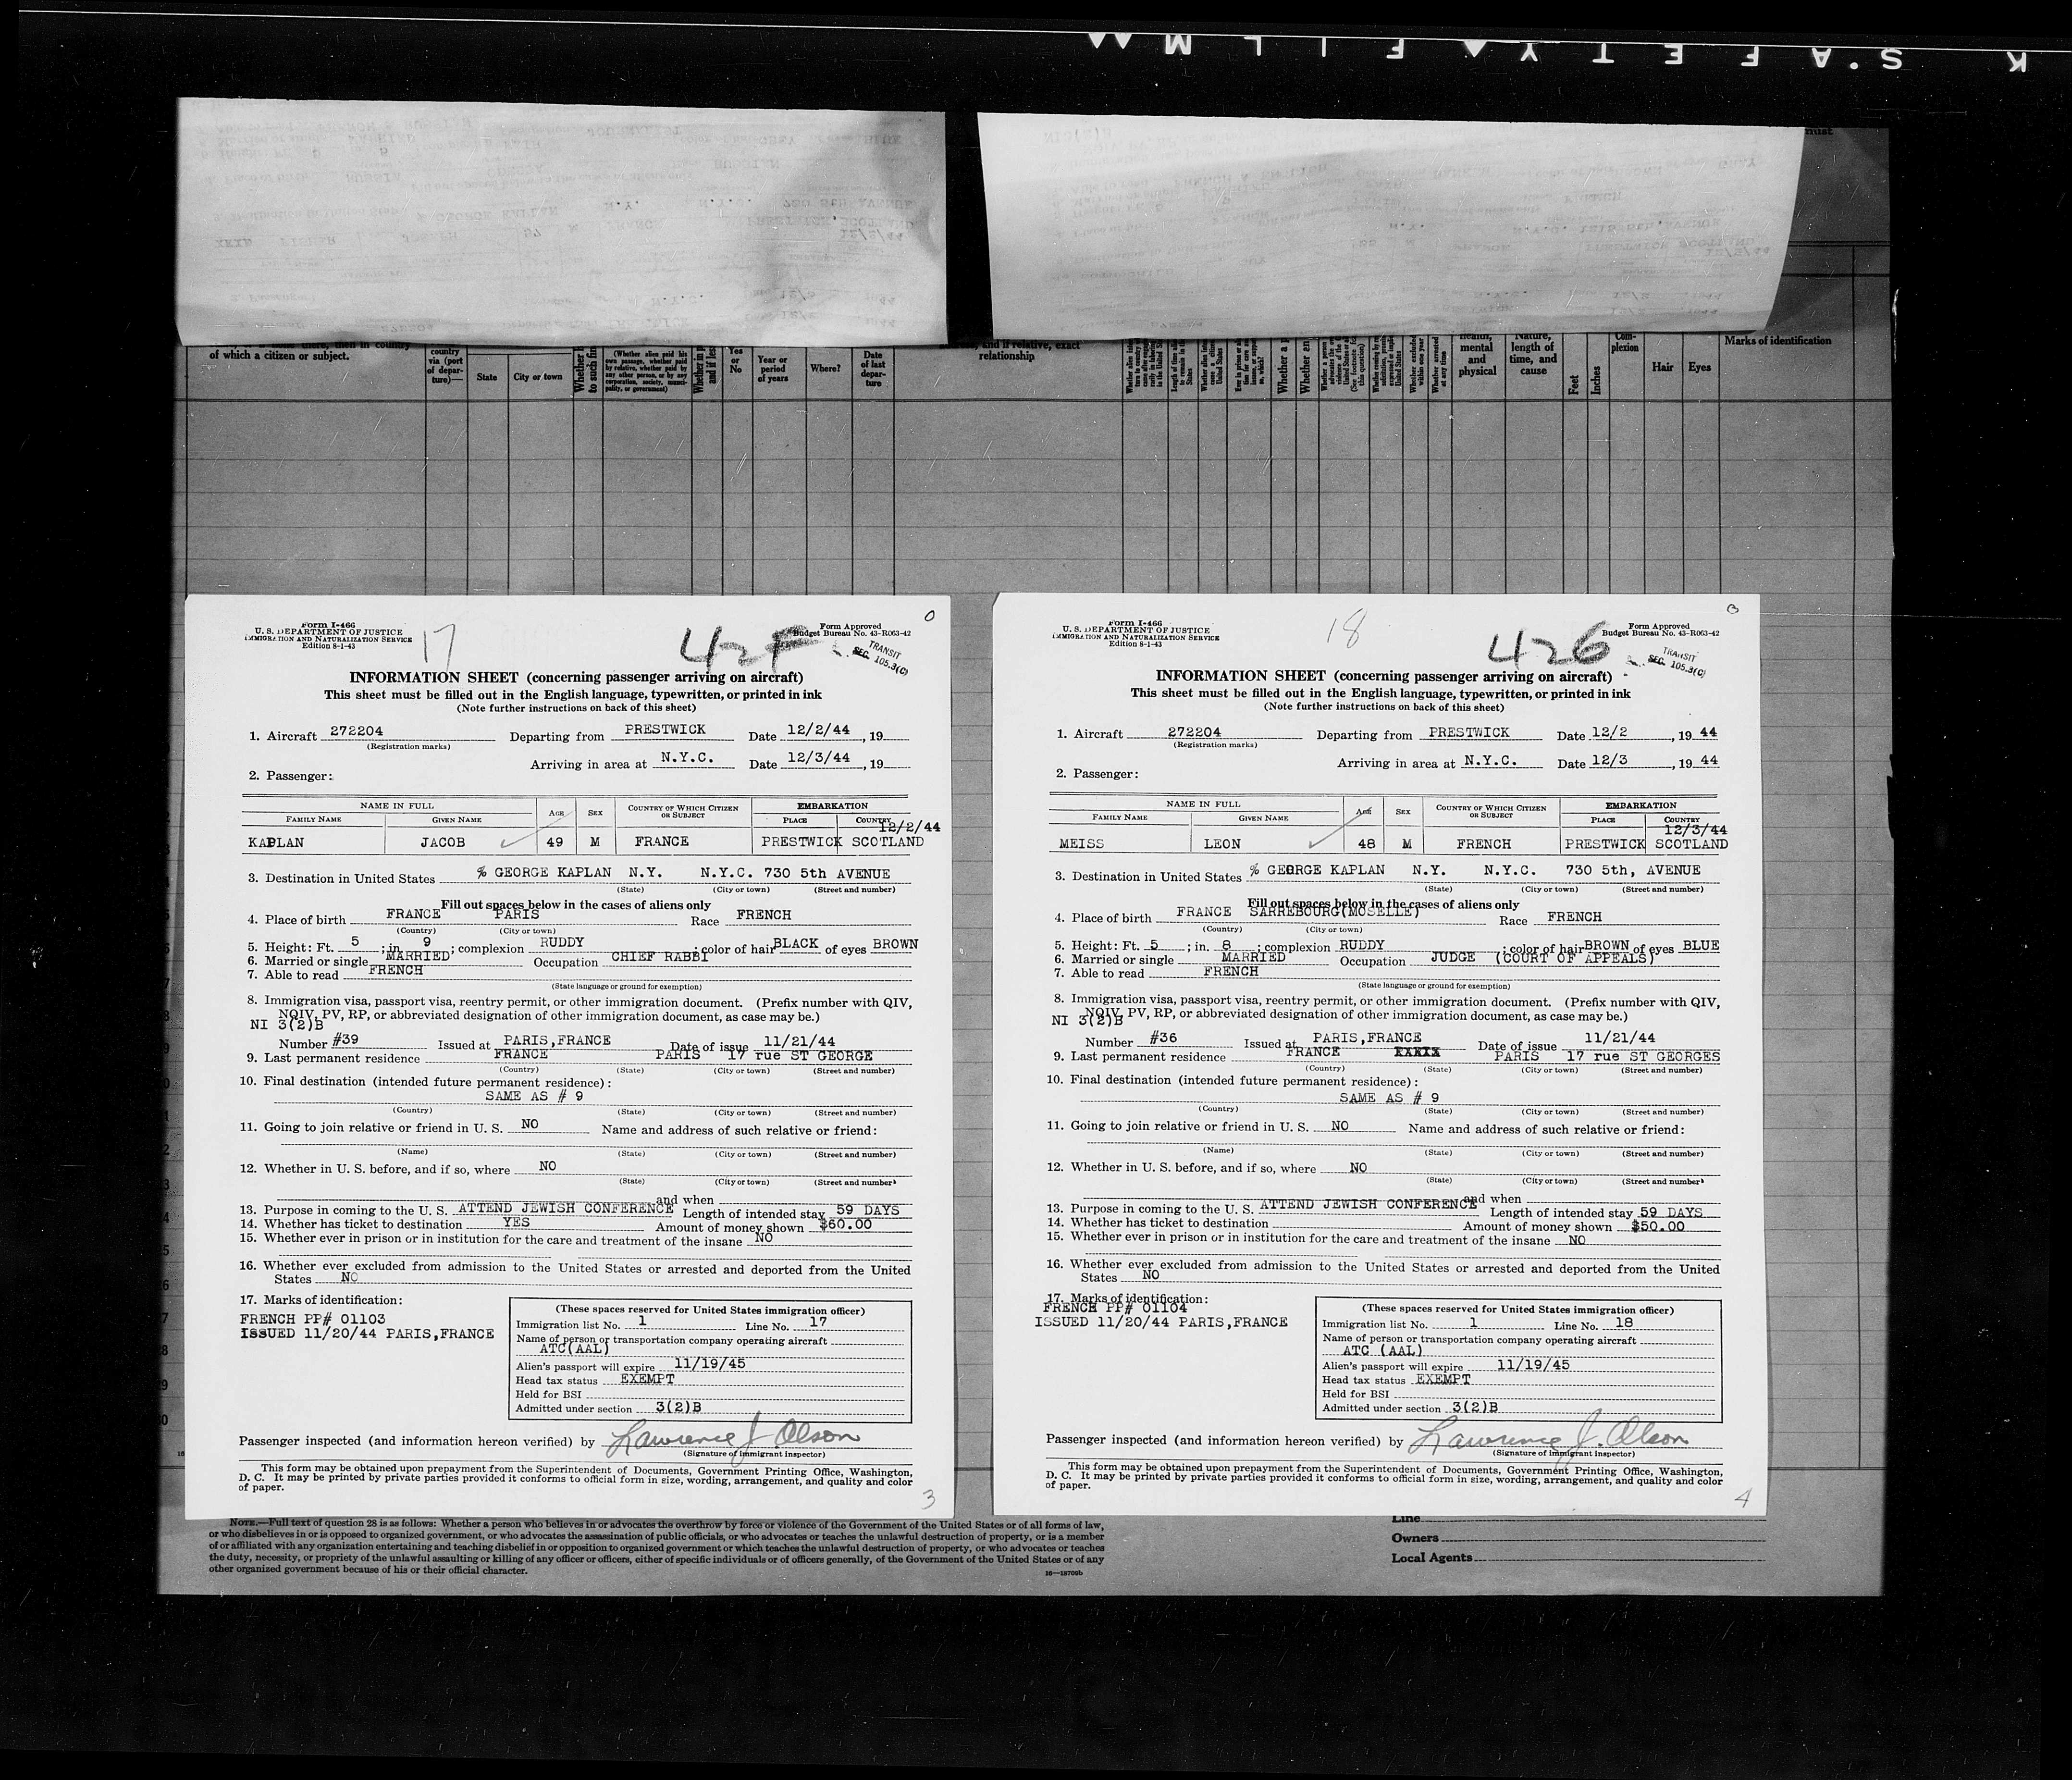 K S.A F E T Y F I L M
of which a citizen or subject.
country via (port of departure)—
State
City or town
(Whether alien paid his own passage, whether paid by relative, whether paid by any other person, or by any corporation, society, municipality, or government)
Yes or No
Year or period of years
Where?
Date of last departure
and if relative, exact relationship
health, mental and physical
Nature, length of time, and cause
Feet
Inches
Complexion
Hair
Eyes
Marks of identification
Form I-466
U. S. DEPARTMENT OF JUSTICE
IMMIGRATION AND NATURALIZATION SERVICE
Edition 8-1-43
17
42F
Form Approved
Budget Bureau No. 43-R063-42
TRANSIT
SEC. 105.3(C)
INFORMATION SHEET (concerning passenger arriving on aircraft)
This sheet must be filled out in the English language, typewritten, or printed in ink
(Note further instructions on back of this sheet)
1. Aircraft 272204 Departing from PRESTWICK Date 12/2/44, 19
(Registration marks)
Arriving in area at N.Y.C. Date 12/3/44, 19
2. Passenger:
NAME IN FULL AGE SEX COUNTRY OF WHICH CITIZEN OR SUBJECT EMBARKATION
FAMILY NAME GIVEN NAME PLACE COUNTRY
12/2/44
KAPLAN JACOB 49 M FRANCE PRESTWICK SCOTLAND
3. Destination in United States % GEORGE KAPLAN N.Y. N.Y.C. 730 5th AVENUE
(State) (City or town) (Street and number)
Fill out spaces below in the cases of aliens only
4. Place of birth FRANCE PARIS Race FRENCH
(Country) (City or town)
5. Height: Ft. 5; in. 9; complexion RUDDY; color of hair BLACK of eyes BROWN
6. Married or single MARRIED Occupation CHIEF RABBI
7. Able to read FRENCH
(State language or ground for exemption)
8. Immigration visa, passport visa, reentry permit, or other immigration document. (Prefix number with QIV,
NQIV, PV, RP, or abbreviated designation of other immigration document, as case may be.)
NI 3(2)B
Number #39 Issued at PARIS,FRANCE Date of issue 11/21/44
9. Last permanent residence FRANCE PARIS 17 rue ST GEORGE
(Country) (State) (City or town) (Street and number)
10. Final destination (intended future permanent residence):
SAME AS # 9
(Country) (State) (City or town) (Street and number)
11. Going to join relative or friend in U. S. NO Name and address of such relative or friend:
(Name) (State) (City or town) (Street and number)
12. Whether in U. S. before, and if so, where NO
(State) (City or town) (Street and number)
and when
13. Purpose in coming to the U. S. ATTEND JEWISH CONFERENCE Length of intended stay 59 DAYS
14. Whether has ticket to destination YES Amount of money shown $60.00
15. Whether ever in prison or in institution for the care and treatment of the insane NO
16. Whether ever excluded from admission to the United States or arrested and deported from the United
States NO
17. Marks of identification:
FRENCH PP# 01103
ISSUED 11/20/44 PARIS,FRANCE
(These spaces reserved for United States immigration officer)
Immigration list No. 1 Line No. 17
Name of person or transportation company operating aircraft
ATC(AAL)
Alien's passport will expire 11/19/45
Head tax status EXEMPT
Held for BSI
Admitted under section 3(2)B
Passenger inspected (and information hereon verified) by Lawrence J Olson
(Signature of immigrant inspector)
This form may be obtained upon prepayment from the Superintendent of Documents, Government Printing Office, Washington,
D. C. It may be printed by private parties provided it conforms to official form in size, wording, arrangement, and quality and color
of paper.
3
Form I-466
U. S. DEPARTMENT OF JUSTICE
IMMIGRATION AND NATURALIZATION SERVICE
Edition 8-1-43
18
426
Form Approved
Budget Bureau No. 43-R063-42
TRANSIT
SEC. 105.3(C)
INFORMATION SHEET (concerning passenger arriving on aircraft)
This sheet must be filled out in the English language, typewritten, or printed in ink
(Note further instructions on back of this sheet)
1. Aircraft 272204 Departing from PRESTWICK Date 12/2, 19 44
(Registration marks)
Arriving in area at N.Y.C. Date 12/3, 19 44
2. Passenger:
NAME IN FULL AGE SEX COUNTRY OF WHICH CITIZEN OR SUBJECT EMBARKATION
FAMILY NAME GIVEN NAME PLACE COUNTRY
12/3/44
MEISS LEON 48 M FRENCH PRESTWICK SCOTLAND
3. Destination in United States % GEORGE KAPLAN N.Y. N.Y.C. 730 5th, AVENUE
(State) (City or town) (Street and number)
Fill out spaces below in the cases of aliens only
4. Place of birth FRANCE SARREBOURG(MOSELLE) Race FRENCH
(Country) (City or town)
5. Height: Ft. 5; in. 8; complexion RUDDY; color of hair BROWN of eyes BLUE
6. Married or single MARRIED Occupation JUDGE (COURT OF APPEALS)
7. Able to read FRENCH
(State language or ground for exemption)
8. Immigration visa, passport visa, reentry permit, or other immigration document. (Prefix number with QIV,
NQIV, PV, RP, or abbreviated designation of other immigration document, as case may be.)
NI 3(2)B
Number #36 Issued at PARIS,FRANCE Date of issue 11/21/44
9. Last permanent residence FRANCE PARIS 17 rue ST GEORGES
(Country) (State) (City or town) (Street and number)
10. Final destination (intended future permanent residence):
SAME AS # 9
(Country) (State) (City or town) (Street and number)
11. Going to join relative or friend in U. S. NO Name and address of such relative or friend:
(Name) (State) (City or town) (Street and number)
12. Whether in U. S. before, and if so, where NO
(State) (City or town) (Street and number)
and when
13. Purpose in coming to the U. S. ATTEND JEWISH CONFERENCE Length of intended stay 59 DAYS
14. Whether has ticket to destination Amount of money shown $50.00
15. Whether ever in prison or in institution for the care and treatment of the insane NO
16. Whether ever excluded from admission to the United States or arrested and deported from the United
States NO
17. Marks of identification:
FRENCH PP# 01104
ISSUED 11/20/44 PARIS,FRANCE
(These spaces reserved for United States immigration officer)
Immigration list No. 1 Line No. 18
Name of person or transportation company operating aircraft
ATC (AAL)
Alien's passport will expire 11/19/45
Head tax status EXEMPT
Held for BSI
Admitted under section 3(2)B
Passenger inspected (and information hereon verified) by Lawrence J. Olson
(Signature of immigrant inspector)
This form may be obtained upon prepayment from the Superintendent of Documents, Government Printing Office, Washington,
D. C. It may be printed by private parties provided it conforms to official form in size, wording, arrangement, and quality and color
of paper.
4
NOTE.—Full text of question 28 is as follows: Whether a person who believes in or advocates the overthrow by force or violence of the Government of the United States or of all forms of law,
or who disbelieves in or is opposed to organized government, or who advocates the assassination of public officials, or who advocates or teaches the unlawful destruction of property, or is a member
of or affiliated with any organization entertaining and teaching disbelief in or opposition to organized government or which teaches the unlawful destruction of property, or who advocates or teaches
the duty, necessity, or propriety of the unlawful assaulting or killing of any officer or officers, either of specific individuals or of officers generally, of the Government of the United States or of any
other organized government because of his or their official character.
Line
Owners
Local Agents